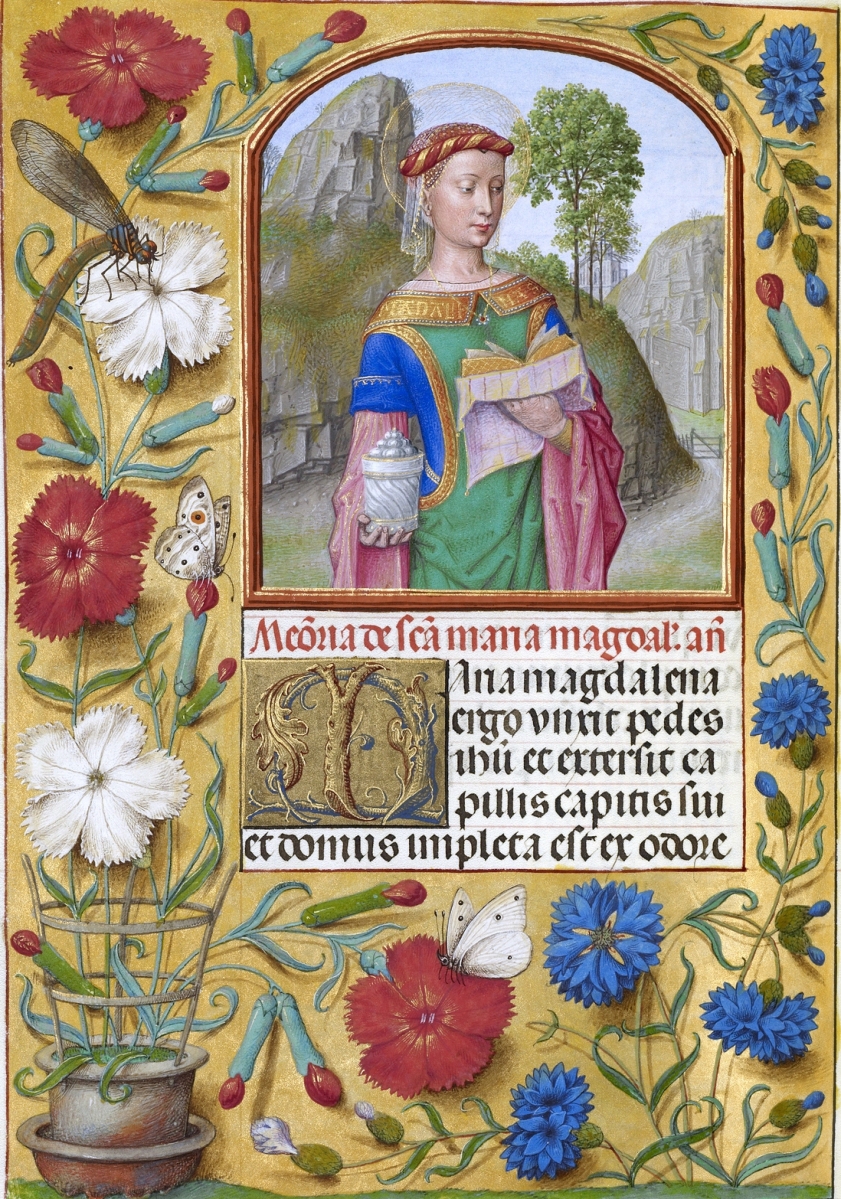 MADALENA
Meōria de scā maria magdal. añ
Maria magdalena
ergo vnxit pedes
ihū et extersit ca
pillis capitis sui
et domus impleta est ex odore